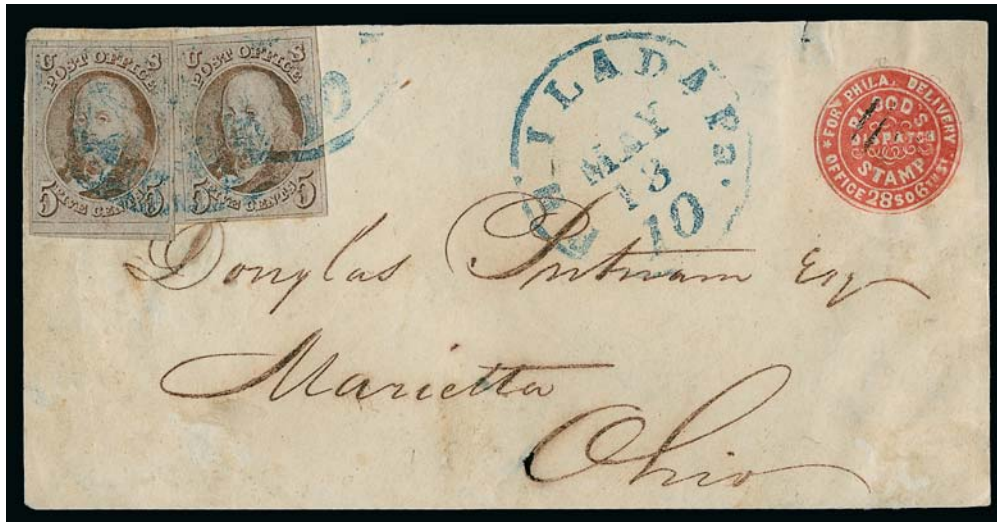 U S
POST OFFICE
5 FIVE CENTS 5
U S
POST OFFICE
5 FIVE CENTS 5
10
PHILADA Pa.
MAY
13
10
FOR PHILA. DELIVERY
BLOOD'S
DISPATCH
STAMP
OFFICE 28 SO 6TH ST.
Douglas Putnam Esq
Marietta
Ohio